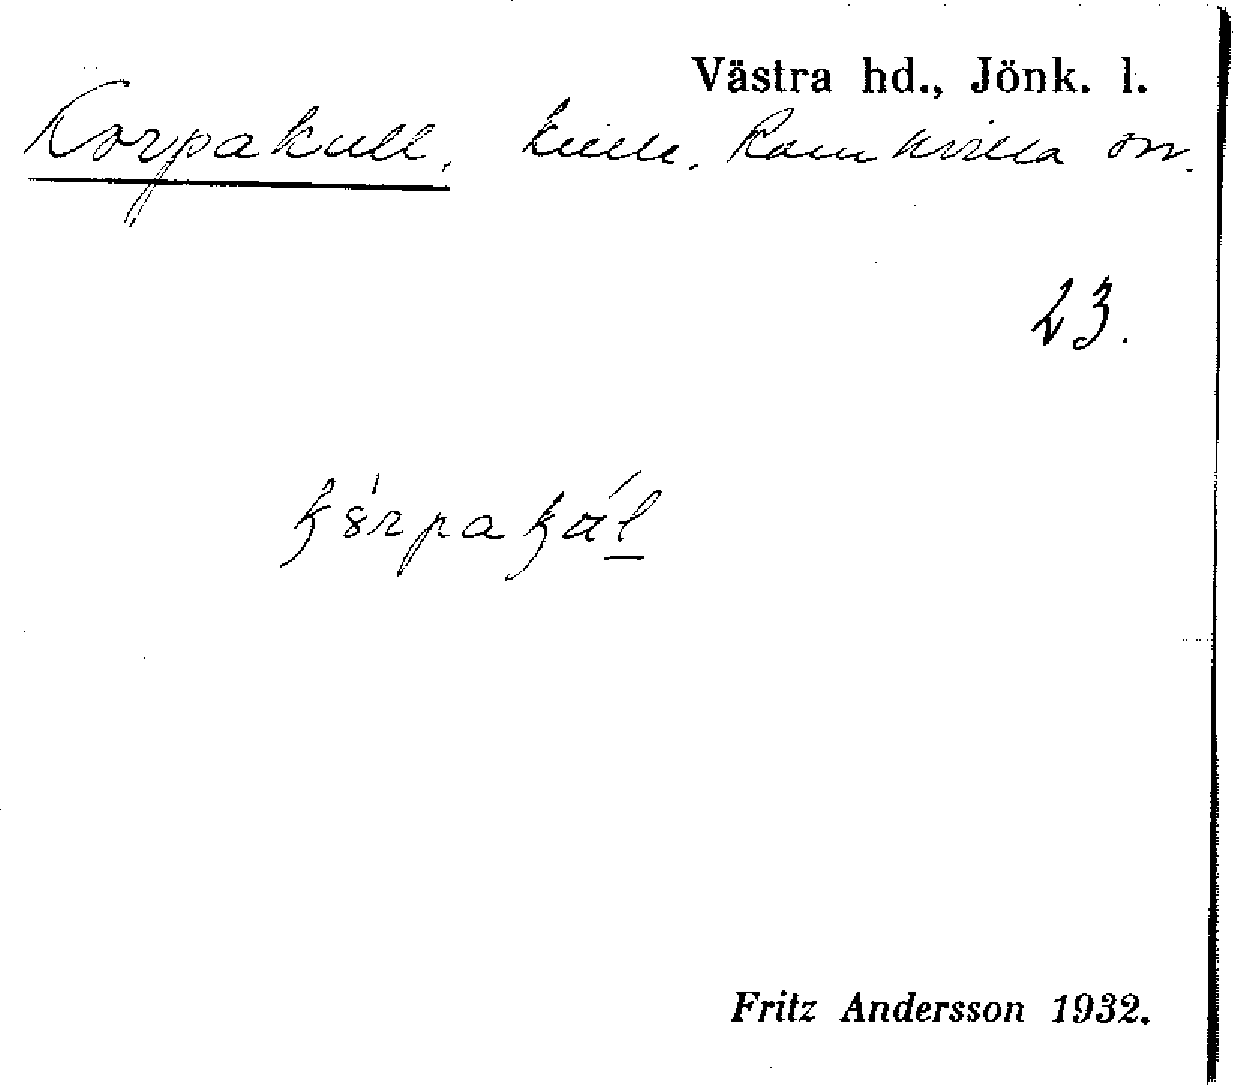 Västra hd., Jönk. l.
Korpakull. kulle. Ramkvilla sn.
23.
Fritz Andersson 1932.